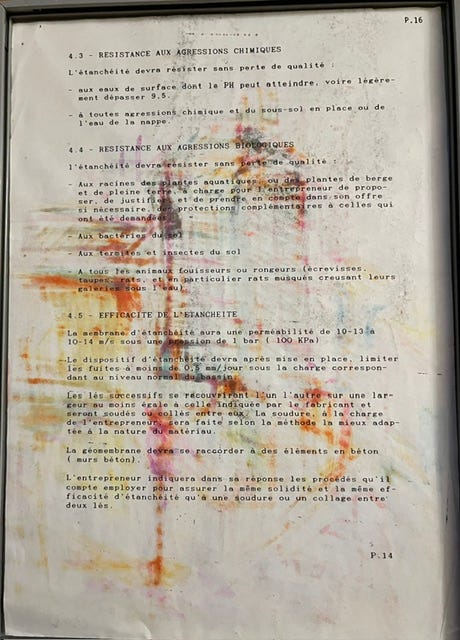 P.16
4.3 - RESISTANCE AUX AGRESSIONS CHIMIQUES
L'étanchéité devra résister sans perte de qualité :
- aux eaux de surface dont le PH peut atteindre, voire légère-
ment dépasser 9,5.
- à toutes agressions chimique et du sous-sol en place ou de
l'eau de la nappe.
4.4 - RESISTANCE AUX AGRESSIONS BIOLOGIQUES
l'étanchéité devra résister sans perte de qualité :
- Aux racines des plantes aquatiques ou des plantes de berge
et de pleine terre à charge pour l'entrepreneur de propo-
ser, de justifier et de prendre en compte dans son offre
si nécessaire, des protections complémentaires à celles qui
ont été demandées.
- Aux bactéries du sol
- Aux termites et insectes du sol
- A tous les animaux fouisseurs ou rongeurs (écrevisses,
taupes, rats, et en particulier rats musqués creusant leurs
galeries sous l'eau).
4.5 - EFFICACITE DE L'ETANCHEITE
La membrane d'étanchéité aura une perméabilité de 10-13 à
10-14 m/s sous une pression de 1 bar ( 100 KPa)
Le dispositif d'étanchéité devra après mise en place, limiter
les fuites à moins de 0,5 mm/jour sous la charge correspon-
dant au niveau normal du bassin.
Les lés successifs se recouvriront l'un l'autre sur une lar-
geur au moins égale à celle indiquée par le fabricant et
seront soudés ou collés entre eux. La soudure, à la charge
de l'entrepreneur, sera faite selon la méthode la mieux adap-
tée à la nature du matériau.
La géomembrane devra se raccorder à des éléments en béton
( murs béton).
L'entrepreneur indiquera dans sa réponse les procédés qu'il
compte employer pour assurer la même solidité et la même ef-
ficacité d'étanchéité qu'à une soudure ou un collage entre
deux lés.
P.14